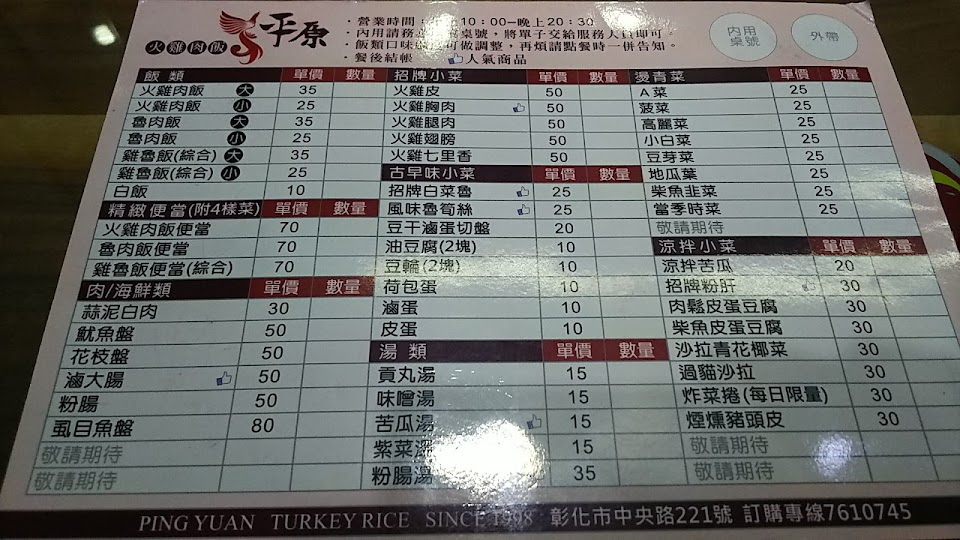 火雞肉飯 平原
·營業時間: 10:00-晚上20:30
·內用請務必 桌號,將單子交給服務人員即可。
·飯類口味 可做調整,再煩請點餐時一併告知。
·餐後結帳 人氣商品
內用桌號
外帶
飯類 單價 數量
火雞肉飯 大 35
火雞肉飯 小 25
魯肉飯 大 35
魯肉飯 小 25
雞魯飯(綜合) 大 35
雞魯飯(綜合) 小 25
白飯 10
精緻便當(附4樣菜) 單價 數量
火雞肉飯便當 70
魯肉飯便當 70
雞魯飯便當(綜合) 70
肉/海鮮類 單價 數量
蒜泥白肉 30
魷魚盤 50
花枝盤 50
滷大腸 50
粉腸 50
虱目魚盤 80
敬請期待
敬請期待
招牌小菜 單價 數量
火雞皮 50
火雞胸肉 50
火雞腿肉 50
火雞翅膀 50
火雞七里香 50
古早味小菜 單價 數量
招牌白菜魯 25
風味魯筍絲 25
豆干滷蛋切盤 20
油豆腐(2塊) 10
豆輪(2塊) 10
荷包蛋 10
滷蛋 10
皮蛋 10
湯類 單價 數量
貢丸湯 15
味噌湯 15
苦瓜湯 15
紫菜湯 15
粉腸湯 35
燙青菜 單價 數量
A菜 25
菠菜 25
高麗菜 25
小白菜 25
豆芽菜 25
地瓜葉 25
柴魚韭菜 25
當季時菜 25
敬請期待
涼拌小菜 單價 數量
涼拌苦瓜 20
招牌粉肝 30
肉鬆皮蛋豆腐 30
柴魚皮蛋豆腐 30
沙拉青花椰菜 30
過貓沙拉 30
炸菜捲(每日限量) 30
煙燻豬頭皮 30
敬請期待
敬請期待
PING YUAN TURKEY RICE SINCE 1998 彰化市中央路221號 訂購專線7610745